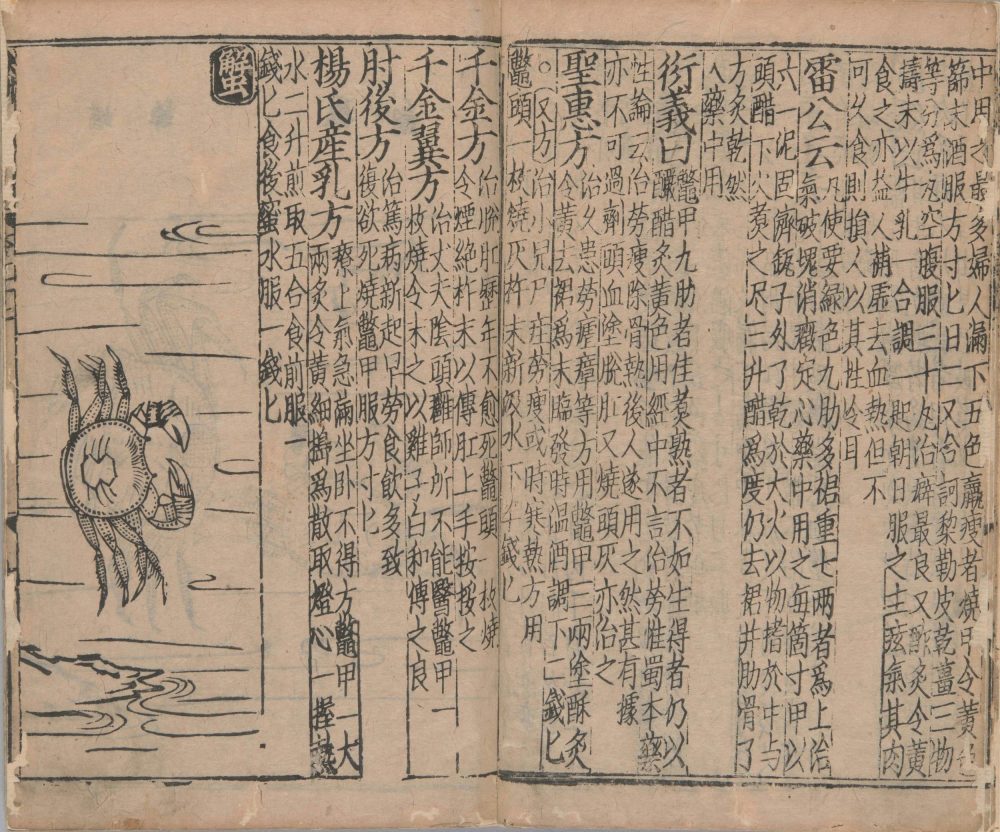 中用之最多婦人漏下五色羸瘦者燒甲令黃色
篩末酒服方寸匕日二又合訶黎勒皮乾薑三物
等分爲丸空腹服三十丸治癖最良又酥炙令黃
擣末以牛乳一合調一匙朝日服之主痃氣其肉
食之亦益人補虛去血熱但不
可久食則損人以其性冷耳
雷公云
凡使要綠色九肋多裙重七兩者爲上治
氣破塊消癥定心藥中用之每箇寸甲以
六一泥固濟瓶子外了乾於大火以物搘於中与
頭醋下火煮之尽三升醋爲度仍去裙并肋骨了
方炙乾然
入藥中用
衍義曰
鱉甲九肋者佳煮熟者不如生得者仍以
釅醋炙黃色用經中不言治勞惟蜀本藥
性論云治勞瘦除骨熱後人遂用之然甚有據
亦不可過劑頭血塗脫肛又燒頭灰亦治之
聖惠方
治久患勞瘧瘴等方用鱉甲三兩塗酥炙
令黃去裙爲末臨發時溫酒調下二錢匕
○又方治小兒尸疰勞瘦或時寒熱方用
鱉頭一枚燒灰杵末新汲水下半錢匕
千金方
治脫肛歷年不愈死鱉頭一枚燒
令煙絶杵末以傅肛上手按挼之
千金翼方
治丈夫陰頭癰師所不能醫鱉甲一
枚燒令末之以雞子白和傅之良
肘後方
治篤病新起早勞食飲多致
復欲死燒鱉甲服方寸匕
楊氏産乳方
療上氣急滿坐卧不得方鱉甲一大
兩炙令黃細擣爲散取燈心一握
水二升煎取五合食前服一
錢匕食後蜜水服一錢匕
蟹